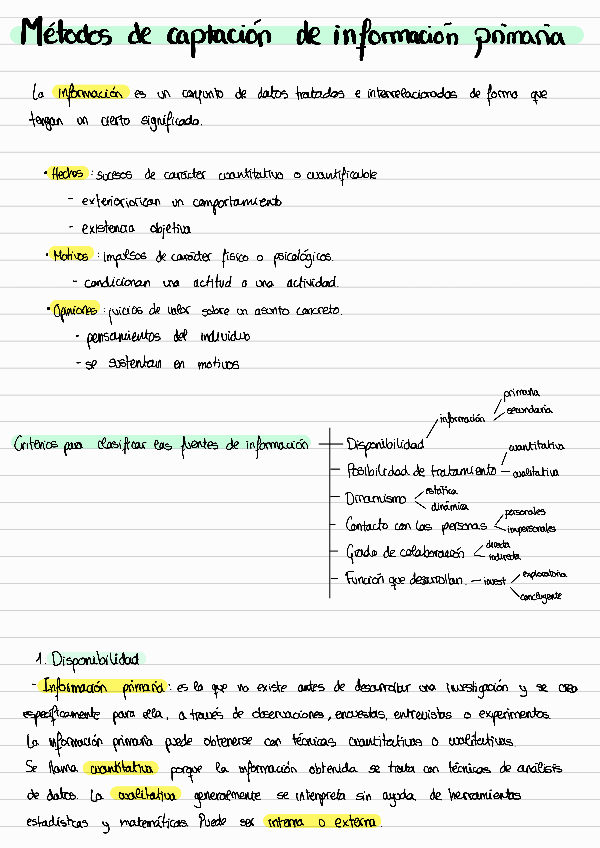 Métodos de captación de información primaria
La información es un conjunto de datos tratados e interrelacionados de forma que
tengan un cierto significado.
· Hechos: sucesos de carácter cuantitativo o cuantificable
- exteriorizan un comportamiento
- existencia objetiva
· Motivos: impulsos de carácter físico o psicológicos.
- condicionan una actitud o una actividad.
· Opiniones: juicios de valor sobre un asunto concreto.
- pensamientos del individuo
- se sustentan en motivos
Criterios para clasificar las fuentes de información
Disponibilidad información primaria secundaria
Posibilidad de tratamiento cuantitativa cualitativa
Dinamismo estática dinámica
Contacto con las personas personales impersonales
Grado de colaboración directa indirecta
Función que desarrollan. invest exploratoria concluyente
1. Disponibilidad
- Información primaria: es la que no existe antes de desarrollar una investigación y se crea
específicamente para ella, a través de observaciones, encuestas, entrevistas o experimentos.
La información primaria puede obtenerse con técnicas cuantitativas o cualitativas.
Se llama cuantitativa porque la información obtenida se trata con técnicas de análisis
de datos. La cualitativa generalmente se interpreta sin ayuda de herramientas
estadísticas y matemáticas. Puede ser interna o externa.